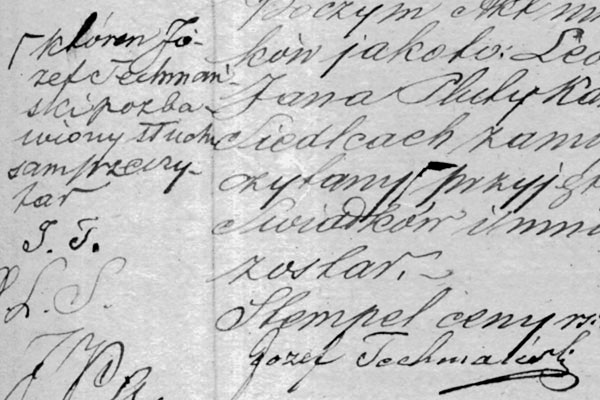 któren Jó-
zef Techmań-
ski pozba-
wiony słuchu
sam przeczy-
tał
J. T.
L. S.
Poczym Akt
ków jakoto: Leo
Jana Pluty
Siedlcach zam
czytany przyję
Swiadków i mni
został.
Stempel ceny rs.
Jozef Techmański